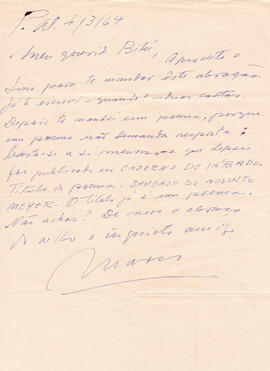 P. A. 4/3/69
meu querido Bibi, Aproveito o
Lino para te mandar este abração.
Já te escrevi - quando? - duas cartas.
Depois te mandei um poema, porque
um poema não demanda resposta:
basta-se a si mesmo que depois
foi publicado em CADERNO DE SÁBADO.
Título do poema: SAUDADE DE AUGUSTO
MEYER. O título já é um poema.
Não achas? De novo o abraço
do velho e inquieto amigo
Mario